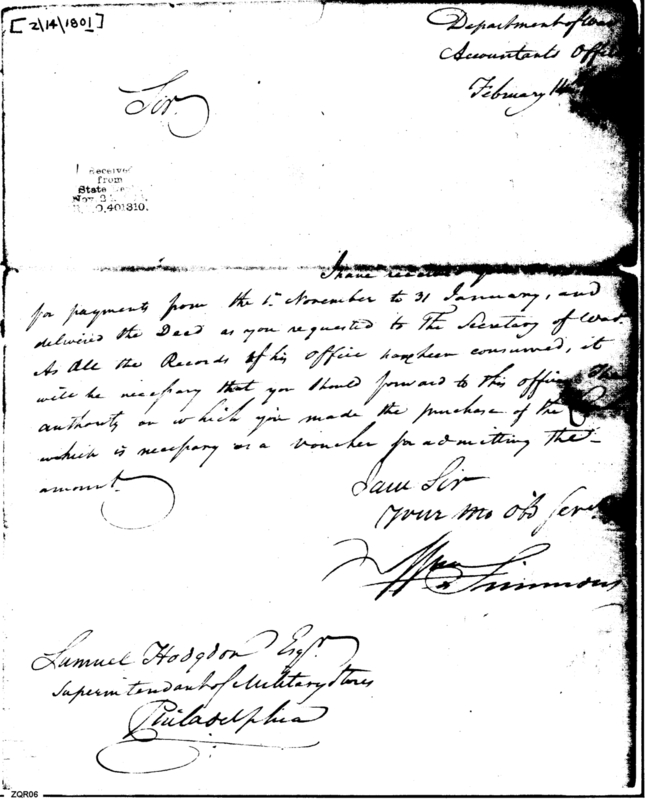 [2/14/1801]
Department of War
Accountants Office
February 14
Sir
Received
from
State
Nov. 2
0,401310.
I have received
for payments from the 1st November to 31 January, and
delivered the Deed as you requested to The Secretary of War.
As All the Records of his Office have been consumed, it
will be necessary that you should forward to this office The
authority on which you made the purchase of the
which is necessary as a voucher for admitting the
amount.
I am Sir
Your Mo Obd Serv
Wm Simmons
Samuel Hodgdon Esqr.
Superintendant of Military Stores
Philadelphia
ZQR06